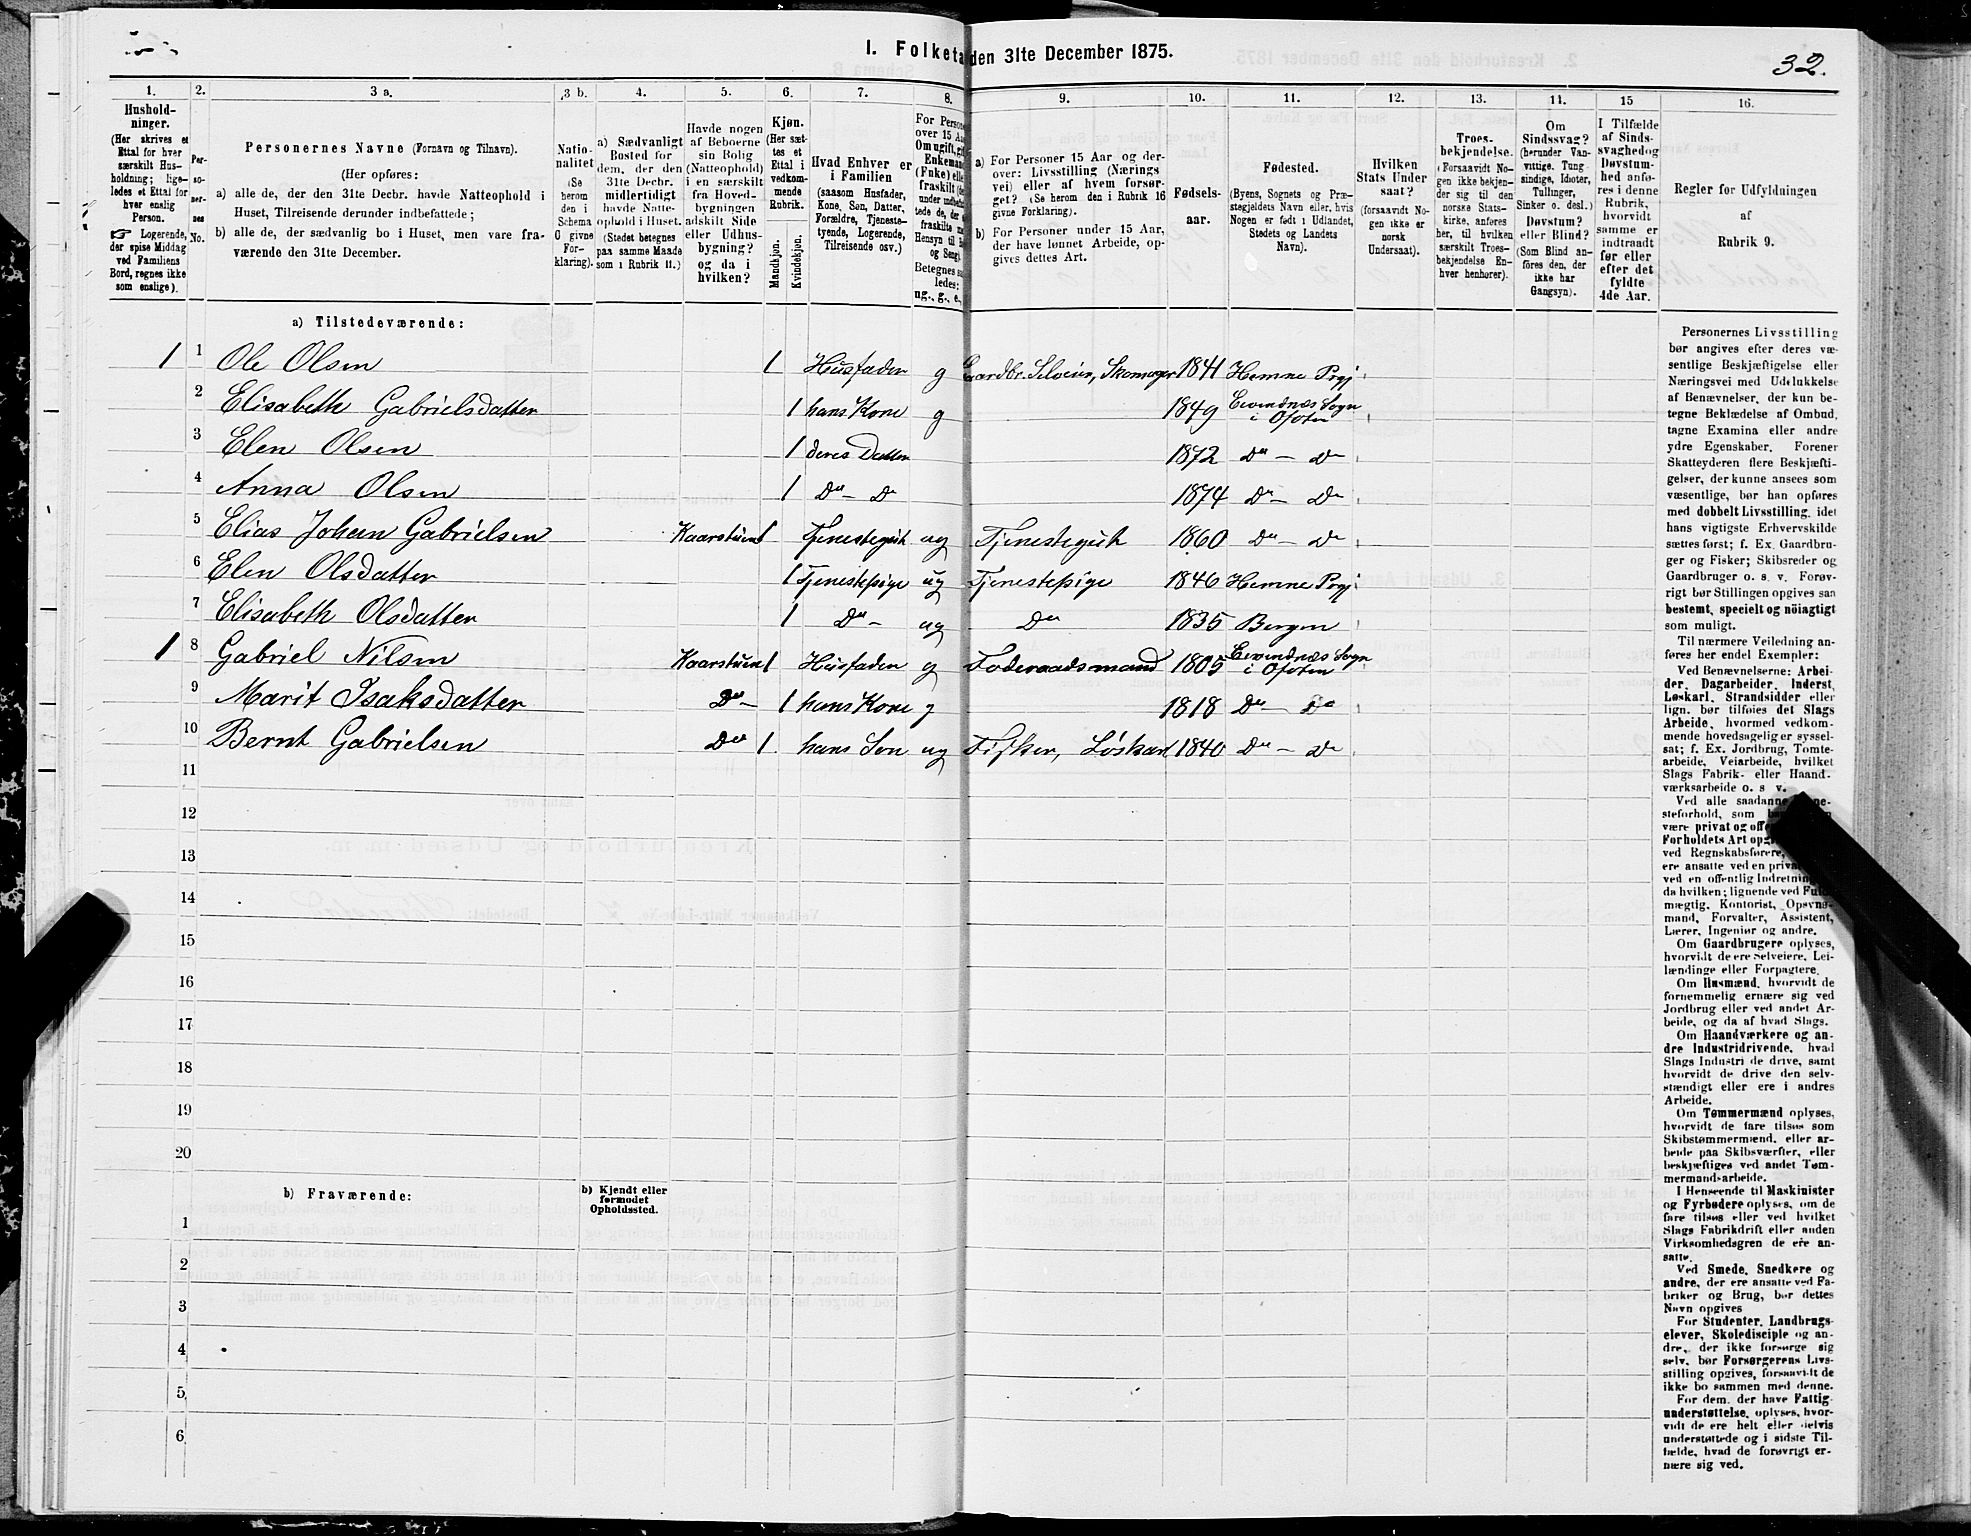 I. Folketa den 31te December 1875.
32.
1. 2. 3 a. 3 b. 4. 5. 6. 7. 8. 9. 10. 11. 12. 13. 14. 15 16.
Hushold-
ninger.
(Her skrives et
Ettal for hver
særskilt Hus-
holdning; lige-
ledes et Ettal for
hver enslig
Person.
☞ Logerende,
der spise Middag
ved Familiens
Bord, regnes ikke
som enslige).
Per-
so-
ner-
nes
No.
Personernes Navne (Fornavn og Tilnavn).
(Her opføres:
a) alle de, der den 31te Decbr. havde Natteophold i
Huset, Tilreisende derunder indbefattede;
b) alle de, der sædvanlig bo i Huset, men vare fra-
værende den 31te December.
Natio-
nalitet
(Se
herom
den i
Schema
O givne
For-
klaring).
a) Sædvanligt
Bosted for
dem, der den
31te Decbr.
midlertidigt
havde Natte-
ophold i Huset.
(Stedet betegnes
paa samme Maade
som i Rubrik 11.)
Havde nogen
af Beboerne
sin Bolig
(Natteophold)
i en særskilt
fra Hoved-
bygningen
adskilt Side
eller Udhus-
bygning?
og da i
hvilken?
Kjøn.
(Her sæt-
tes et
Ettal i
vedkom-
mende
Rubrik.
Mandkjøn.
Kvindekjøn.
Hvad Enhver er
i Familien
(saasom Husfader,
Kone, Søn, Datter,
Forældre, Tjeneste-
tyende, Logerende,
Tilreisende osv.)
For Persone
over 15 Aa
Om ugift, gif
Enkemand
(Enke) elle
fraskilt
ledes:
ug., g., e.,
a) For Personer 15 Aar og der-
over: Livsstilling (Nærings
vei) eller af hvem forsør-
get? (Se herom den i Rubrik 16
givne Forklaring).
b) For Personer under 15 Aar,
der have lønnet Arbeide, op-
gives dettes Art.
Fødsels-
aar.
Fødested.
(Byens, Sognets og Præ-
stegjeldets Navn eller, hvis
Nogen er født i Udlandet,
Stedets og Landets
Navn).
Hvilken
Stats Under
saat?
(forsaavidt No-
gen ikke er
norsk
Undersaat).
Troes-
bekjendelse.
(Forsaavidt No-
gen ikke bekjen-
der sig til den
norske Stats-
kirke, anføres
her, til hvilken
særskilt Troes-
bekjendelse En-
hver henhører).
Om
Sindssvag?
(herunder Van-
vittige, Tung-
sindige, Idioter,
Tullinger,
Sinker o. desl.)
Døvstum?
eller Blind?
(Som Blind an-
føres den, der
ikke har
Gangsyn).
I Tilfælde
af Sinds-
svaghed og
Døvstum-
hed anfø-
res i denne
Rubrik,
hvorvidt
samme er
indtraadt
før eller
efter det
fyldte
4de Aar.
Regler for Udfyldningen
af
Rubrik 9.
a) Tilstedeværende:
1 1 Ole Olsen 1 Husfader g Gaardbr. Selveier, Skomager 1841 Hemne Prgj
2 Elisabeth Gabrielsdatter 1 hans Kone g 1849 Evindnæs Sogn i Ofoten
3 Elen Olsen 1 deres Datter 1872 Do — Do
4 Anna Olsen 1 Do — Do 1874 Do — Do
5 Elias Johan Gabrielsen Kaarstuen 1 Tjenestegut ug Tjenestegut 1860 Do — Do
6 Elen Olsdatter 1 Tjenestepige ug Tjenestepige 1846 Hemne Prgj
7 Elisabeth Olsdatter 1 Do — ug Do 1835 Bergen
1 8 Gabriel Nilsen Kaarstuen 1 Husfader g Foderaadsmand 1805 Evindnæs Sogn i Ofoten
9 Marit Isaksdatter Do — 1 hans Kone g 1818 Do — Do
10 Bernt Gabrielsen Do 1 hans Søn ug Fisker, Løskarl 1840 Do — Do
11
12
13
14
15
16
17
18
19
20
b) Fraværende:
b) Kjendt eller
formodet
Opholdssted.
1
2
3
4
5
6
Personernes Livsstilling
bør angives efter deres væ-
sentlige Beskjæftigelse eller
Næringsvei med Udelukkelse
af Benævnelser, der kun be-
tegne Beklædelse af Ombud,
tagne Examina eller andre
ydre Egenskaber. Forener
Skatteyderen flere Beskjæfti-
gelser, der kunne ansees som
væsentlige, bør han opføres
med dobbelt Livsstilling, idet
hans vigtigste Erhvervskilde
sættes først; f. Ex. Gaardbru-
ger og Fisker; Skibsreder og
Gaardbruger o. s. v. Forøv-
rigt bør Stillingen opgives saa
bestemt, specielt og nøiagtigt
som muligt.
Til nærmere Veiledning an-
føres her endel Exempler:
Ved Benævnelserne: Arbei-
der, Dagarbeider, Inderst,
Løskarl, Strandsidder eller
lign. bør tilføies det Slags
Arbeide, hvormed vedkom-
mende hovedsagelig er syssel-
sat; f. Ex. Jordbrug, Tomte-
arbeide, Veiarbeide, hvilket
Slags Fabrik- eller Haand-
værksarbeide o. s v.
Ved alle saadanne
steforhold, som
være privat og off
Forholdets Art
ved Regnskabsførere,
ere ansatte ved en
ved en offentlig Indretning
da hvilken; lignende ved
mægtig, Kontorist, Opsyns-
mand, Forvalter, Assistent,
Lærer, Ingeniør og andre.
Om Gaardbrugere oplyses,
hvorvidt de ere Selveiere, Lei-
lændinge eller Forpagtere.
Om Husmænd, hvorvidt de
fornemmelig ernære sig ved
Jordbrug eller ved andet Ar-
beide, og da af hvad Slags.
Om Haandværkere og an-
dre Industridrivende, hvad
Slags Industri de drive, samt
hvorvidt de drive den selv-
stændigt eller ere i andres
Arbeide.
Om Tømmermænd oplyses,
hvorvidt de fare tilsøs som
Skibstømmermænd, eller ar-
beide paa Skibsværfter, eller
beskjæftiges ved andet Tøm-
mermandsarbeide.
I Henseende til Maskinister
og Fyrbødere oplyses, om de
fare tilsøs eller ved hvilket
Slags Fabrikdrift eller anden
Virksomhedsgren de ere an-
satte.
Ved Smede, Snedkere og
andre, der ere ansatte ved Fa-
briker og Brug, bør dettes
Navn opgives
For Studenter, Landbrugs-
elever, Skoledisciple og an-
dre, der ikke forsørge sig
selv, bør Forsørgerens Livs-
stilling opgives, forsaavidt de
ikke bo sammen med denne.
For dem, der have Fattig-
understøttelse, oplyses, hvor-
vidt de ere helt eller delvis
understøttede og i sidste Til-
fælde, hvad de forøvrigt er-
nære sig ved.